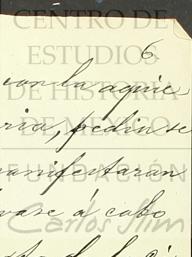 CENTRO DE
ESTUDIOS
DE HISTORIA
DE MÉXICO
FUNDACIÓN
Carlos Slim
6
con la aquie
ria, pedir se
manifestaran
vase á cabo